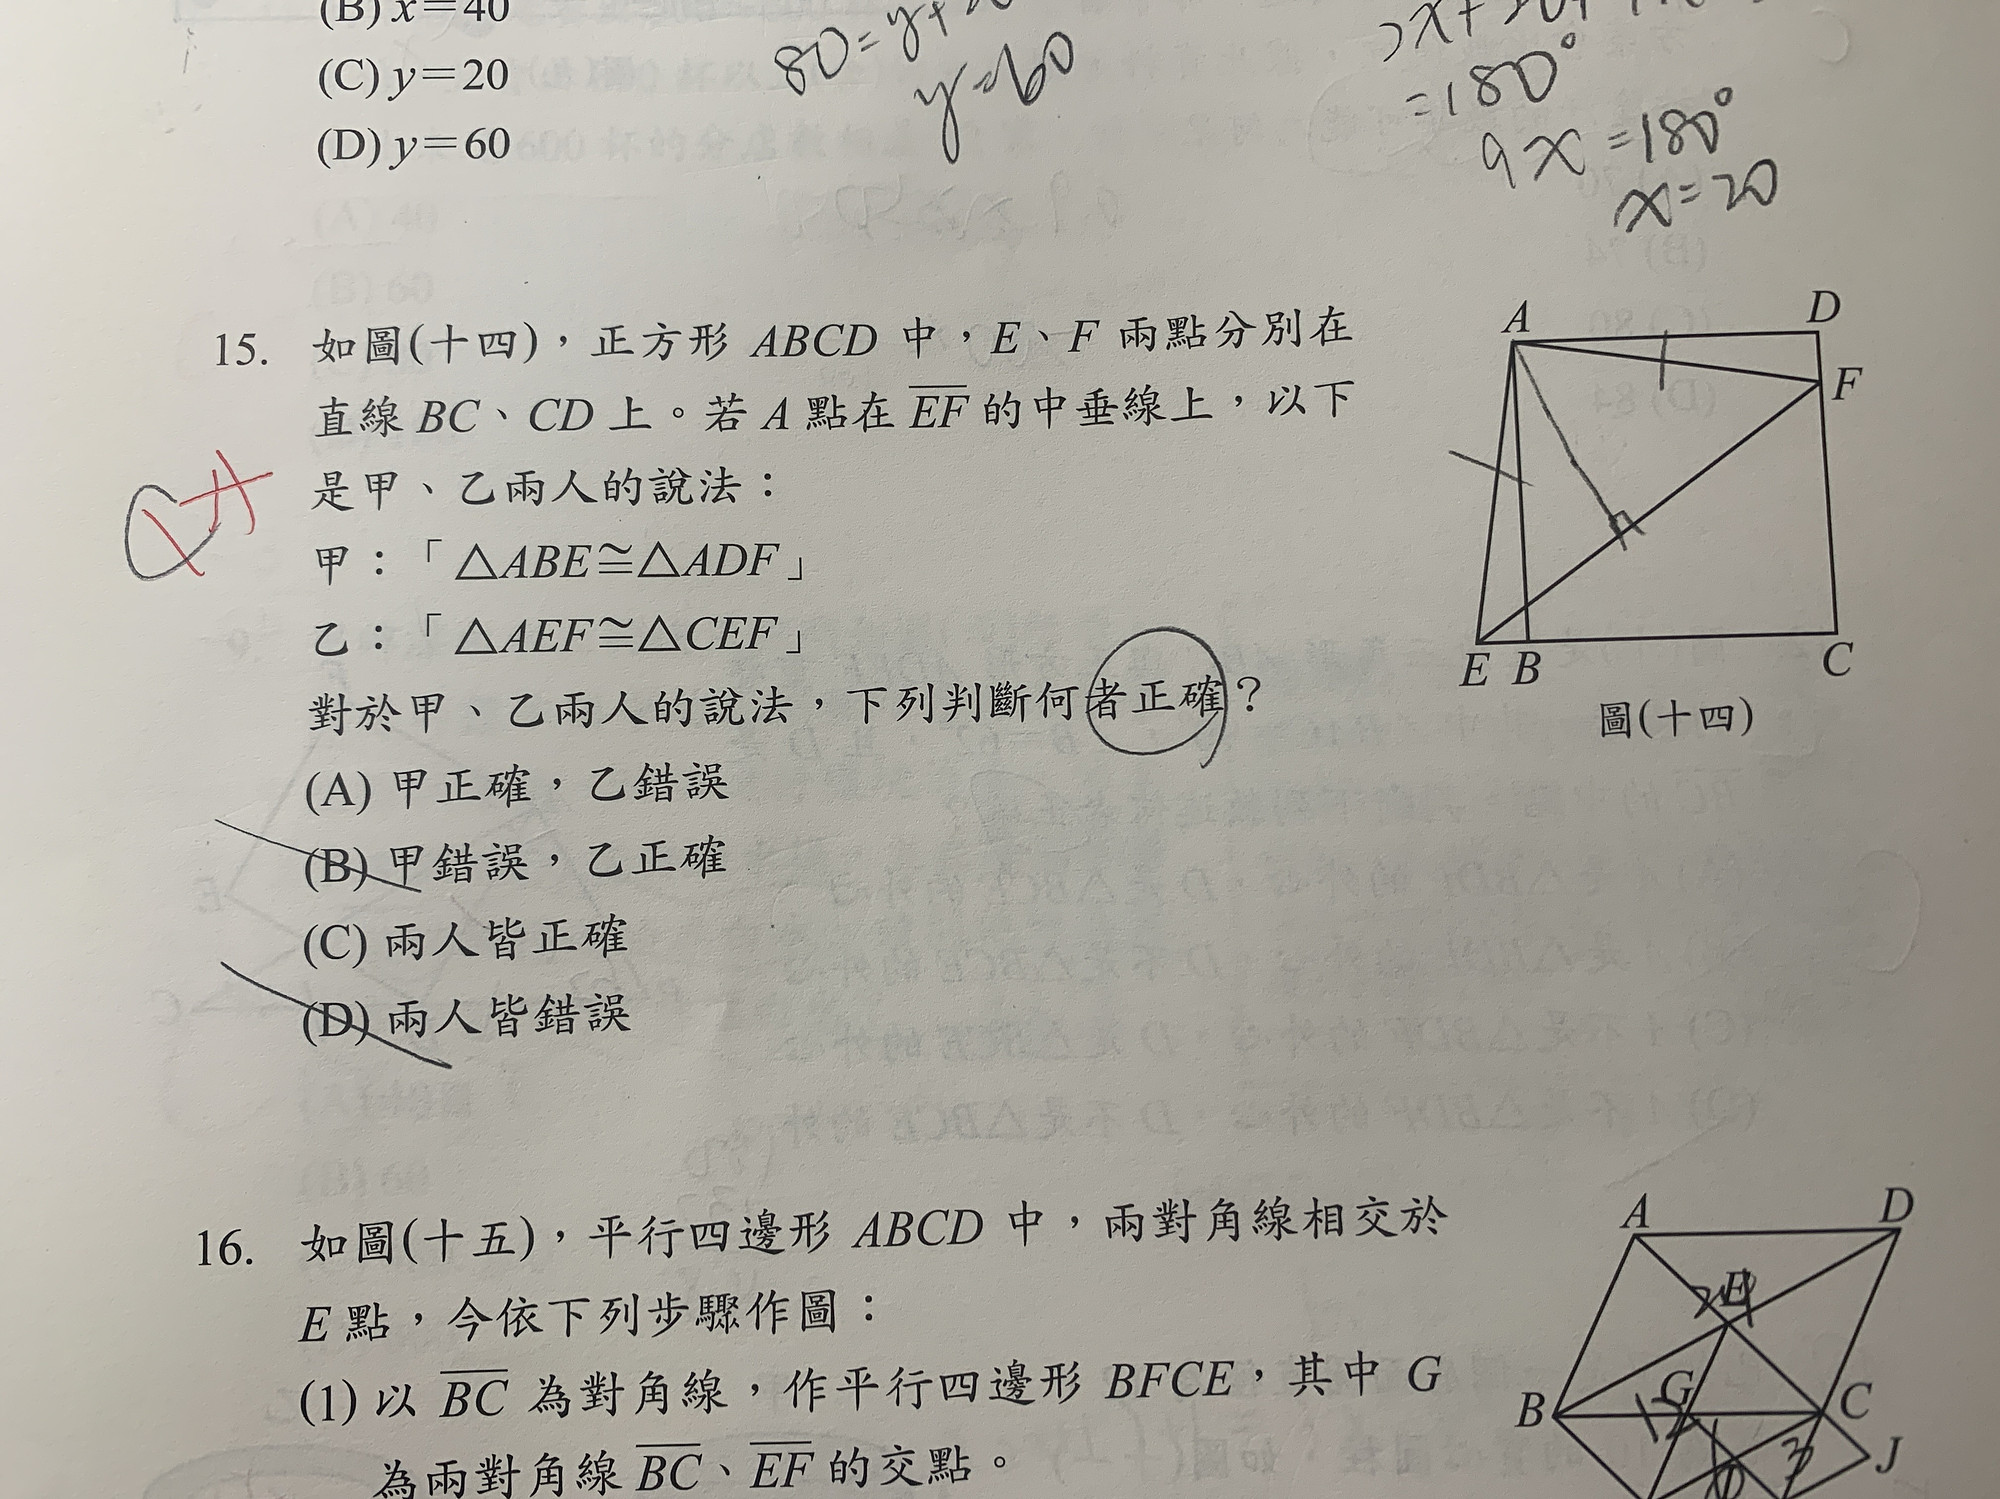 (B) x=40
80=y+
(C) y=20
y=60
=180°
(D) y=60
9x=180°
x=20
15. 如圖(十四),正方形 ABCD 中,E、F 兩點分別在
直線 BC、CD 上。若 A 點在 EF 的中垂線上,以下
是甲、乙兩人的說法:
甲:「△ABE≅△ADF」
乙:「△AEF≅△CEF」
對於甲、乙兩人的說法,下列判斷何者正確?
(A) 甲正確,乙錯誤
(B) 甲錯誤,乙正確
(C) 兩人皆正確
(D) 兩人皆錯誤
A
D
F
E B
C
圖(十四)
16. 如圖(十五),平行四邊形 ABCD 中,兩對角線相交於
E 點,今依下列步驟作圖:
(1) 以 BC 為對角線,作平行四邊形 BFCE,其中 G
為兩對角線 BC、EF 的交點。
A
D
E
B
G
C
J